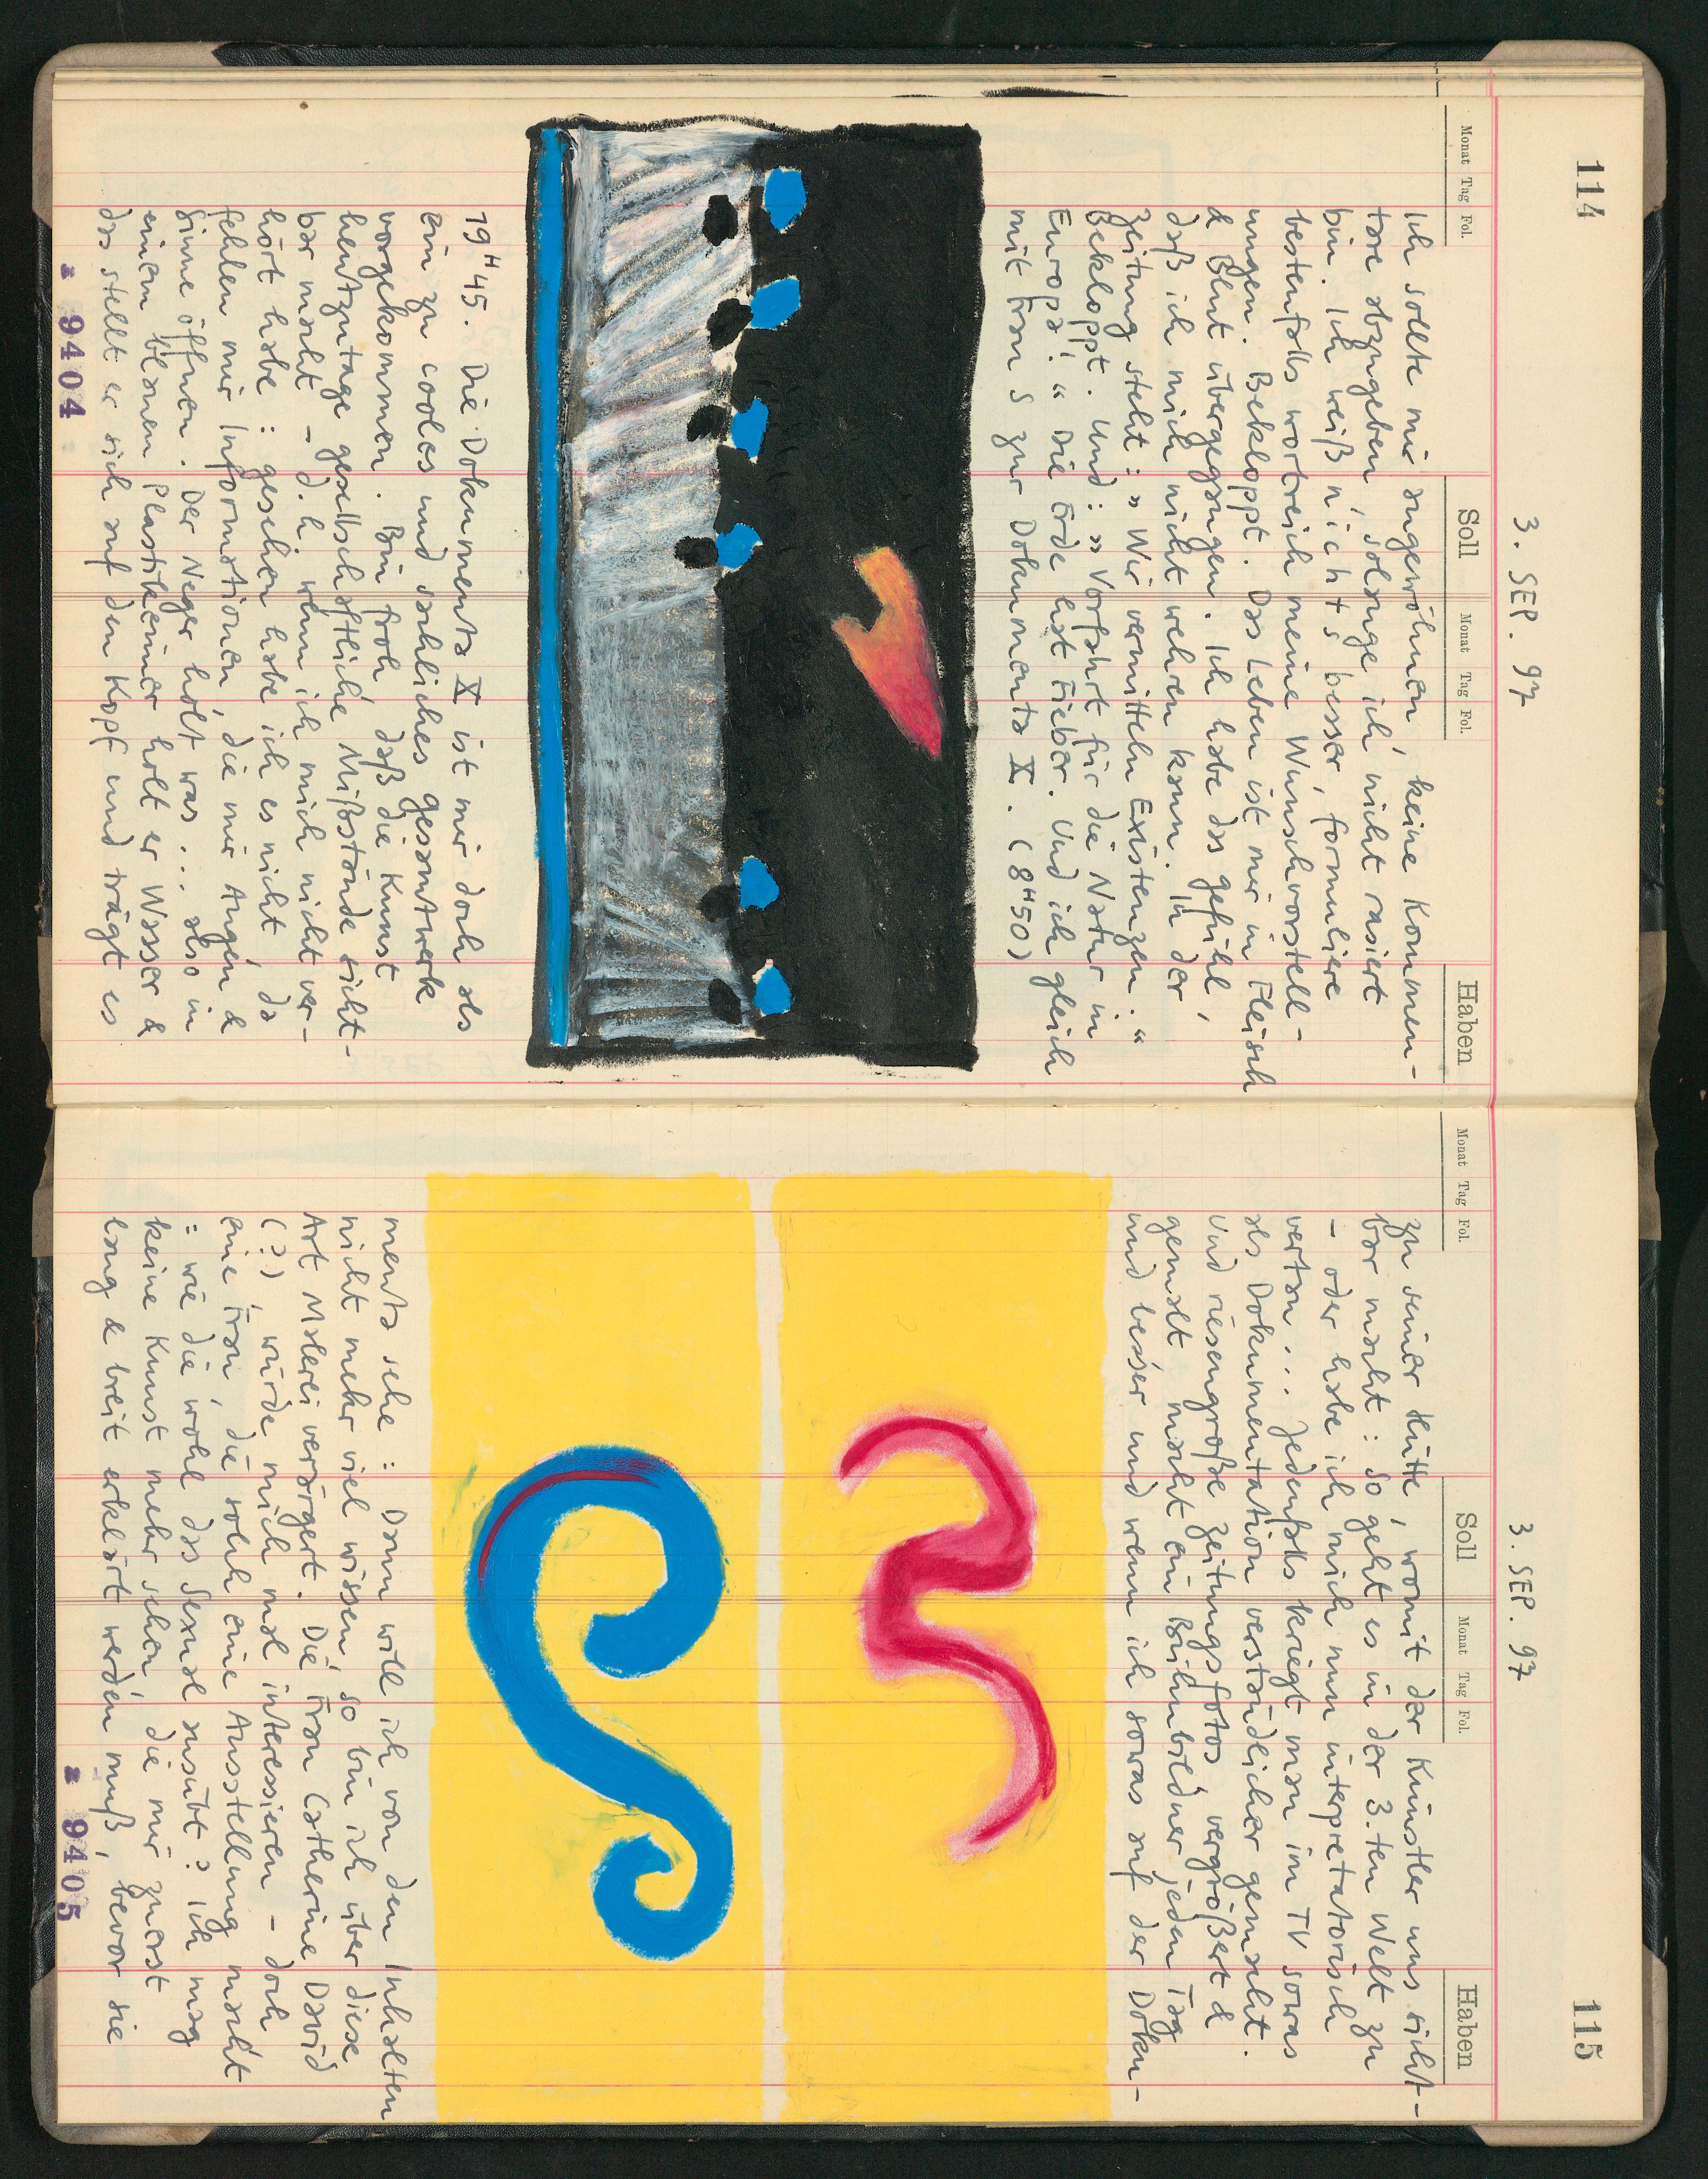 114
3. SEP. 97
Monat Tag Fol. Soll Monat Tag Fol. Haben
Ich sollte mir angewöhnen, keine Kommen-
tare abzugeben, solange ich nicht rasiert
bin. Ich weiß n i c h t s besser, formuliere
bestenfalls wortreich meine Wunschvorstell-
ungen. Bekloppt. Das Leben ist mir in Fleisch
& Blut übergegangen. Ich habe das Gefühl,
daß ich mich nicht wehren kann. In der
Zeitung steht: » Wir vermitteln Existenzen. “
Bekloppt. Und: » Vorfahrt für die Natur in
Europa! “ Die Erde hat Fieber. Und ich gleich
mit Frau S zur Dokumenta X. (8H50)
19H45. Die Dokumenta X ist mir doch als
ein zu cooles und sachliches Gesamtwerk
vorgekommen. Bin froh, daß die Kunst
heutzutage gesellschaftliche Mißstände sicht-
bar macht – d.h. wenn ich mich nicht ver-
hört habe: gesehen habe ich es nicht, da
fehlen mir Informationen, die mir Augen &
Sinne öffnen. Der Neger holt was ... also in
einem blauen Plastikeimer holt er Wasser &
das stellt er sich auf den Kopf und trägt es
9404
115
3. SEP. 97
Monat Tag Fol. Soll Monat Tag Fol. Haben
zu seiner Hütte, womit der Künstler uns sicht-
bar macht: so geht es in der 3.ten Welt zu
– oder habe ich mich nun interpretatorisch
vertan ... Jedenfalls kriegt man im TV sowas
als Dokumentation verständlicher gemacht.
Und riesengroße Zeitungsfotos, vergrößert &
gemalt, macht ein Bühnbildner jeden Tag
und besser und wenn ich sowas auf der Doku-
menta sehe: Dann will ich von den Inhalten
nicht mehr viel wissen, so bin ich über diese
Art Malerei verärgert. Die Frau Catherine David
(?) würde mich mal interessieren – doch
eine Frau, die solch eine Ausstellung macht
: wie die wohl das Sexual ausübt? Ich mag
keine Kunst mehr sehen, die mir zuerst
lang & breit erklärt werden muß, bevor sie
9405